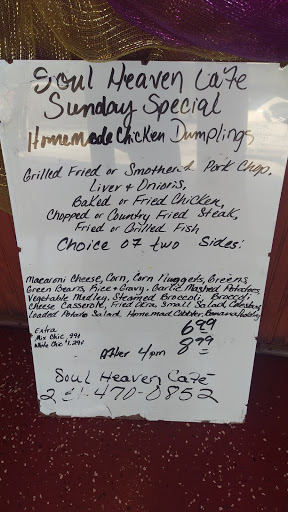 Soul Heaven Cafe
Sunday Special
Homemade Chicken Dumplings
Grilled Fried or Smotherd Pork Chop.
Liver + Onions,
Baked or Fried Chicken,
Chopped or Country Fried Steak,
Fried or Grilled Fish
Choice of two Sides:
Macaroni Cheese, Corn, Corn Nuggets, Greens,
Green Beans, Rice + Gravy. Garlic Mashed Potatoes,
Vegetable Medley, Steamed Broccoli, Broccoli
Cheese Casserole, Fried Okra, Small Salad,
Loaded Potato Salad. Homemad Cobbler,
Extra 6.99
Mix Chic .99¢
White Chic 1.29¢
After 4pm 8.99
Soul Heaven Cafe
251-470-0852